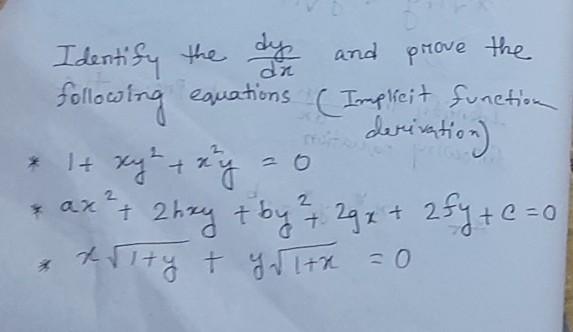 Identify the dy/dx and prove the
following equations (Implicit function
derivation)
* 1 + xy² + x²y = 0
* ax² + 2hxy + by² + 2gx + 2fy + c = 0
* x√1+y + y√1+x = 0